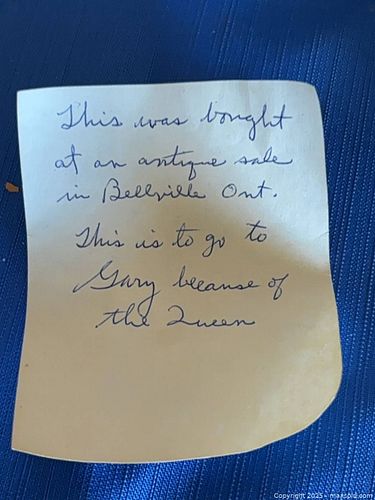 This was bought
at an antique sale
in Bellville Ont.
This is to go to
Gary because of
the Queen
Copyright 2025 - maxsold.com